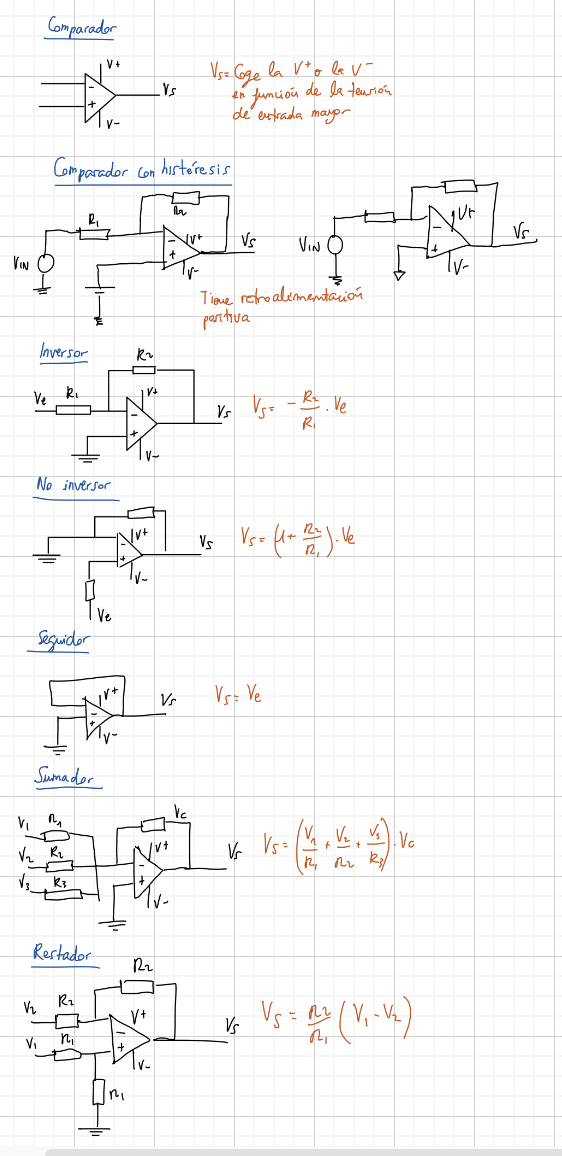 Comparador
V+
Vs
V-
Vs= Coge la V+ o la V-
en función de la tensión
de entrada mayor
Comparador con histéresis
R1
R2
V+
Vs
V-
VIN
VIN
V+
Vs
V-
Tiene retroalimentación
positiva
Inversor
R2
Ve
R1
V+
Vs
V-
Vs= - R2/R1 · Ve
No inversor
V+
Vs
V-
Ve
Vs = (1 + R2/R1) · Ve
Seguidor
V+
Vs
V-
Vs = Ve
Sumador
V1
R1
Vc
V2
R2
V+
Vs
V3
R3
V-
Vs = (V1/R1 + V2/R2 + V3/R3) · Vc
Restador
R2
V2
R2
V+
Vs
V1
R1
V-
R1
Vs = R2/R1 (V1 - V2)